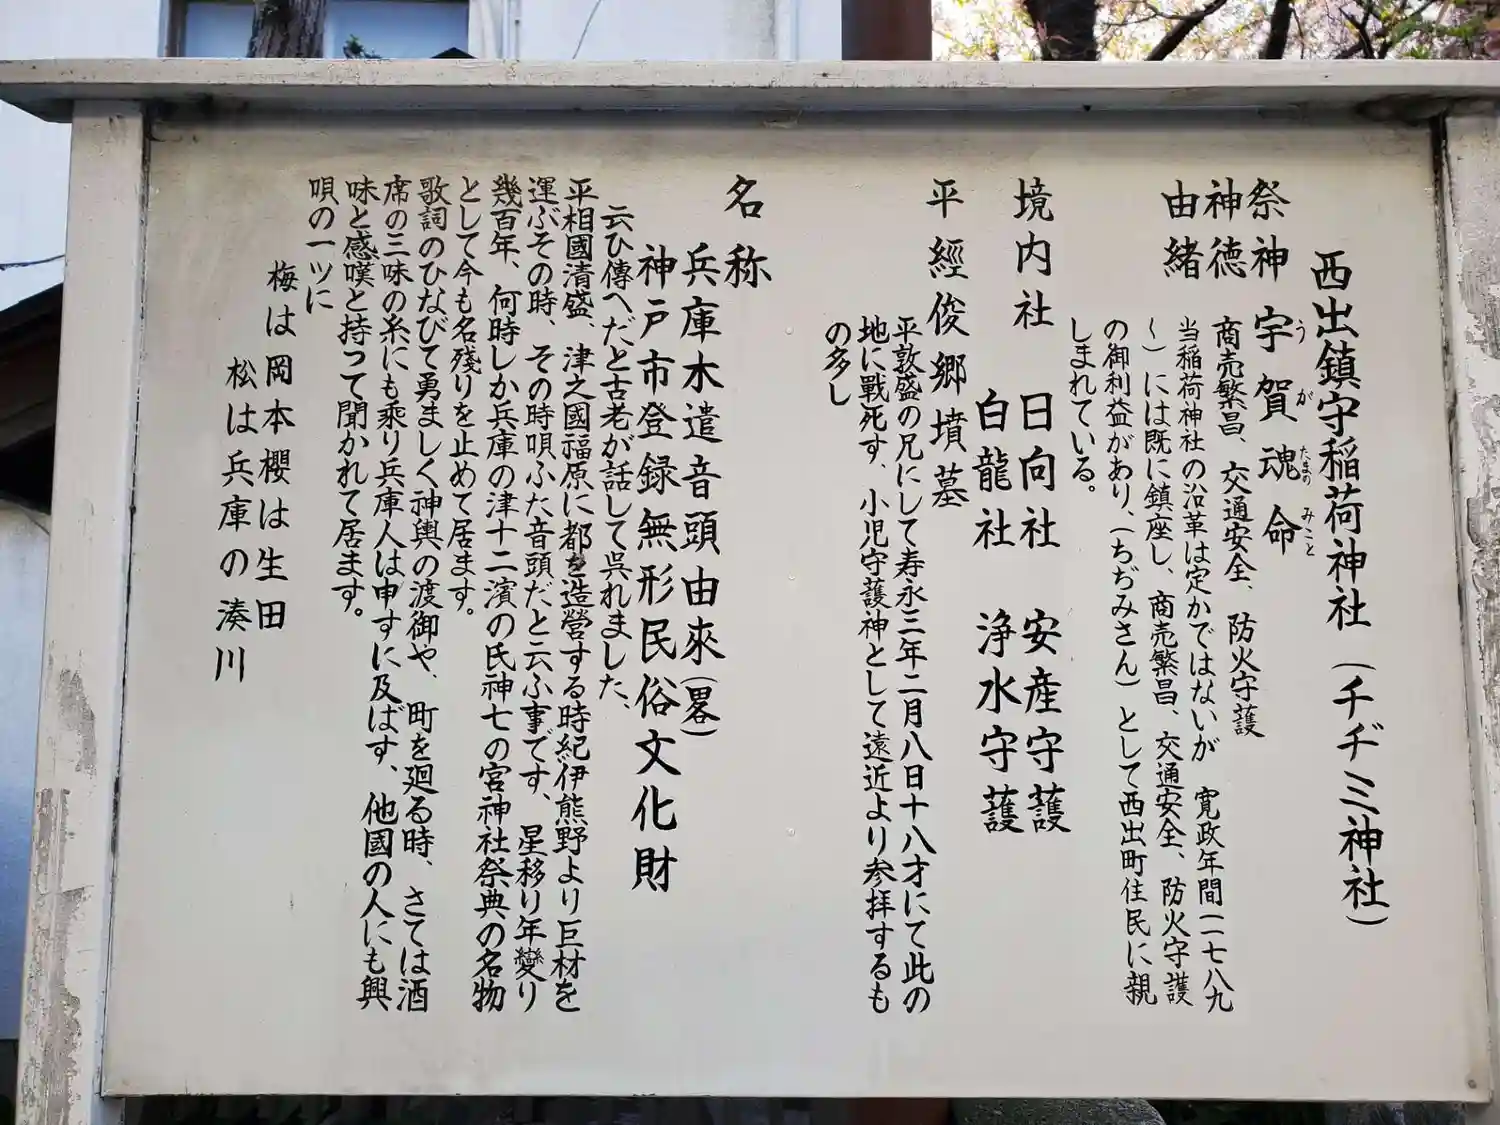 西出鎮守稲荷神社（チヂミ神社）
祭神　宇賀魂命
うがたまのみこと
神徳　商売繁昌、交通安全、防火守護
由緒　当稲荷神社の沿革は定かではないが　寛政年間（一七八九
～）には既に鎮座し、商売繁昌、交通安全、防火守護
の御利益があり、（ちぢみさん）として西出町住民に親
しまれている。
境内社　日向社　安産守護
白龍社　浄水守護
平經俊郷墳墓
平敦盛の兄にして寿永三年二月八日十八才にて此の
地に戰死す、小児守護神として遠近より参拝するも
の多し
名称
兵庫木遣音頭由來（畧）
神戸市登録無形民俗文化財
云ひ傳へだと古老が話して呉れました、
平相國清盛、津之國福原に都を造營する時紀伊熊野より巨材を
運ぶその時、その時唄ふた音頭だと云ふ事です、星移り年變り
幾百年、何時しか兵庫の津十二濱の氏神七の宮神社祭典の名物
として今も名殘りを止めて居ます。
歌詞のひなびて勇ましく神輿の渡御や、町を廻る時、さては酒
席の三味の糸にも乘り兵庫人は申すに及ばす、他國の人にも興
味と感嘆と持って聞かれて居ます。
唄の一ツに
梅は岡本櫻は生田
松は兵庫の湊川